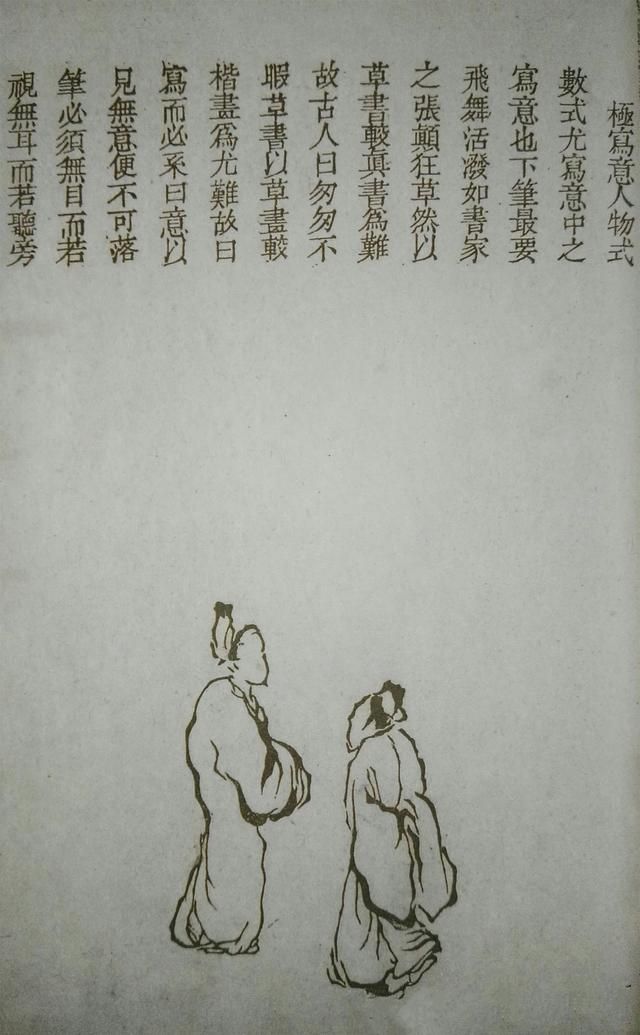 極寫意人物式
數式尤寫意中之
寫意也下筆最要
飛舞活潑如書家
之張顛狂草然以
草書較眞書為難
故古人曰匆匆不
暇草書以草畫較
楷畫爲尤難故曰
寫而必系曰意以
見無意便不可落
筆必須無目而若
視無耳而若聽旁